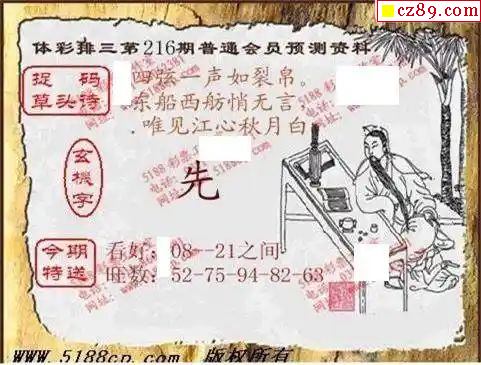 cz89.com
体彩排三第216期普通会员预测资料
捉码
草头诗
四弦一声如裂帛。
东船西舫悄无言，
唯见江心秋月白。
玄機字
先
今期
特送
看好：08--21之间
旺数：52-75-94-82-63
www.5188cp.com 版权所有